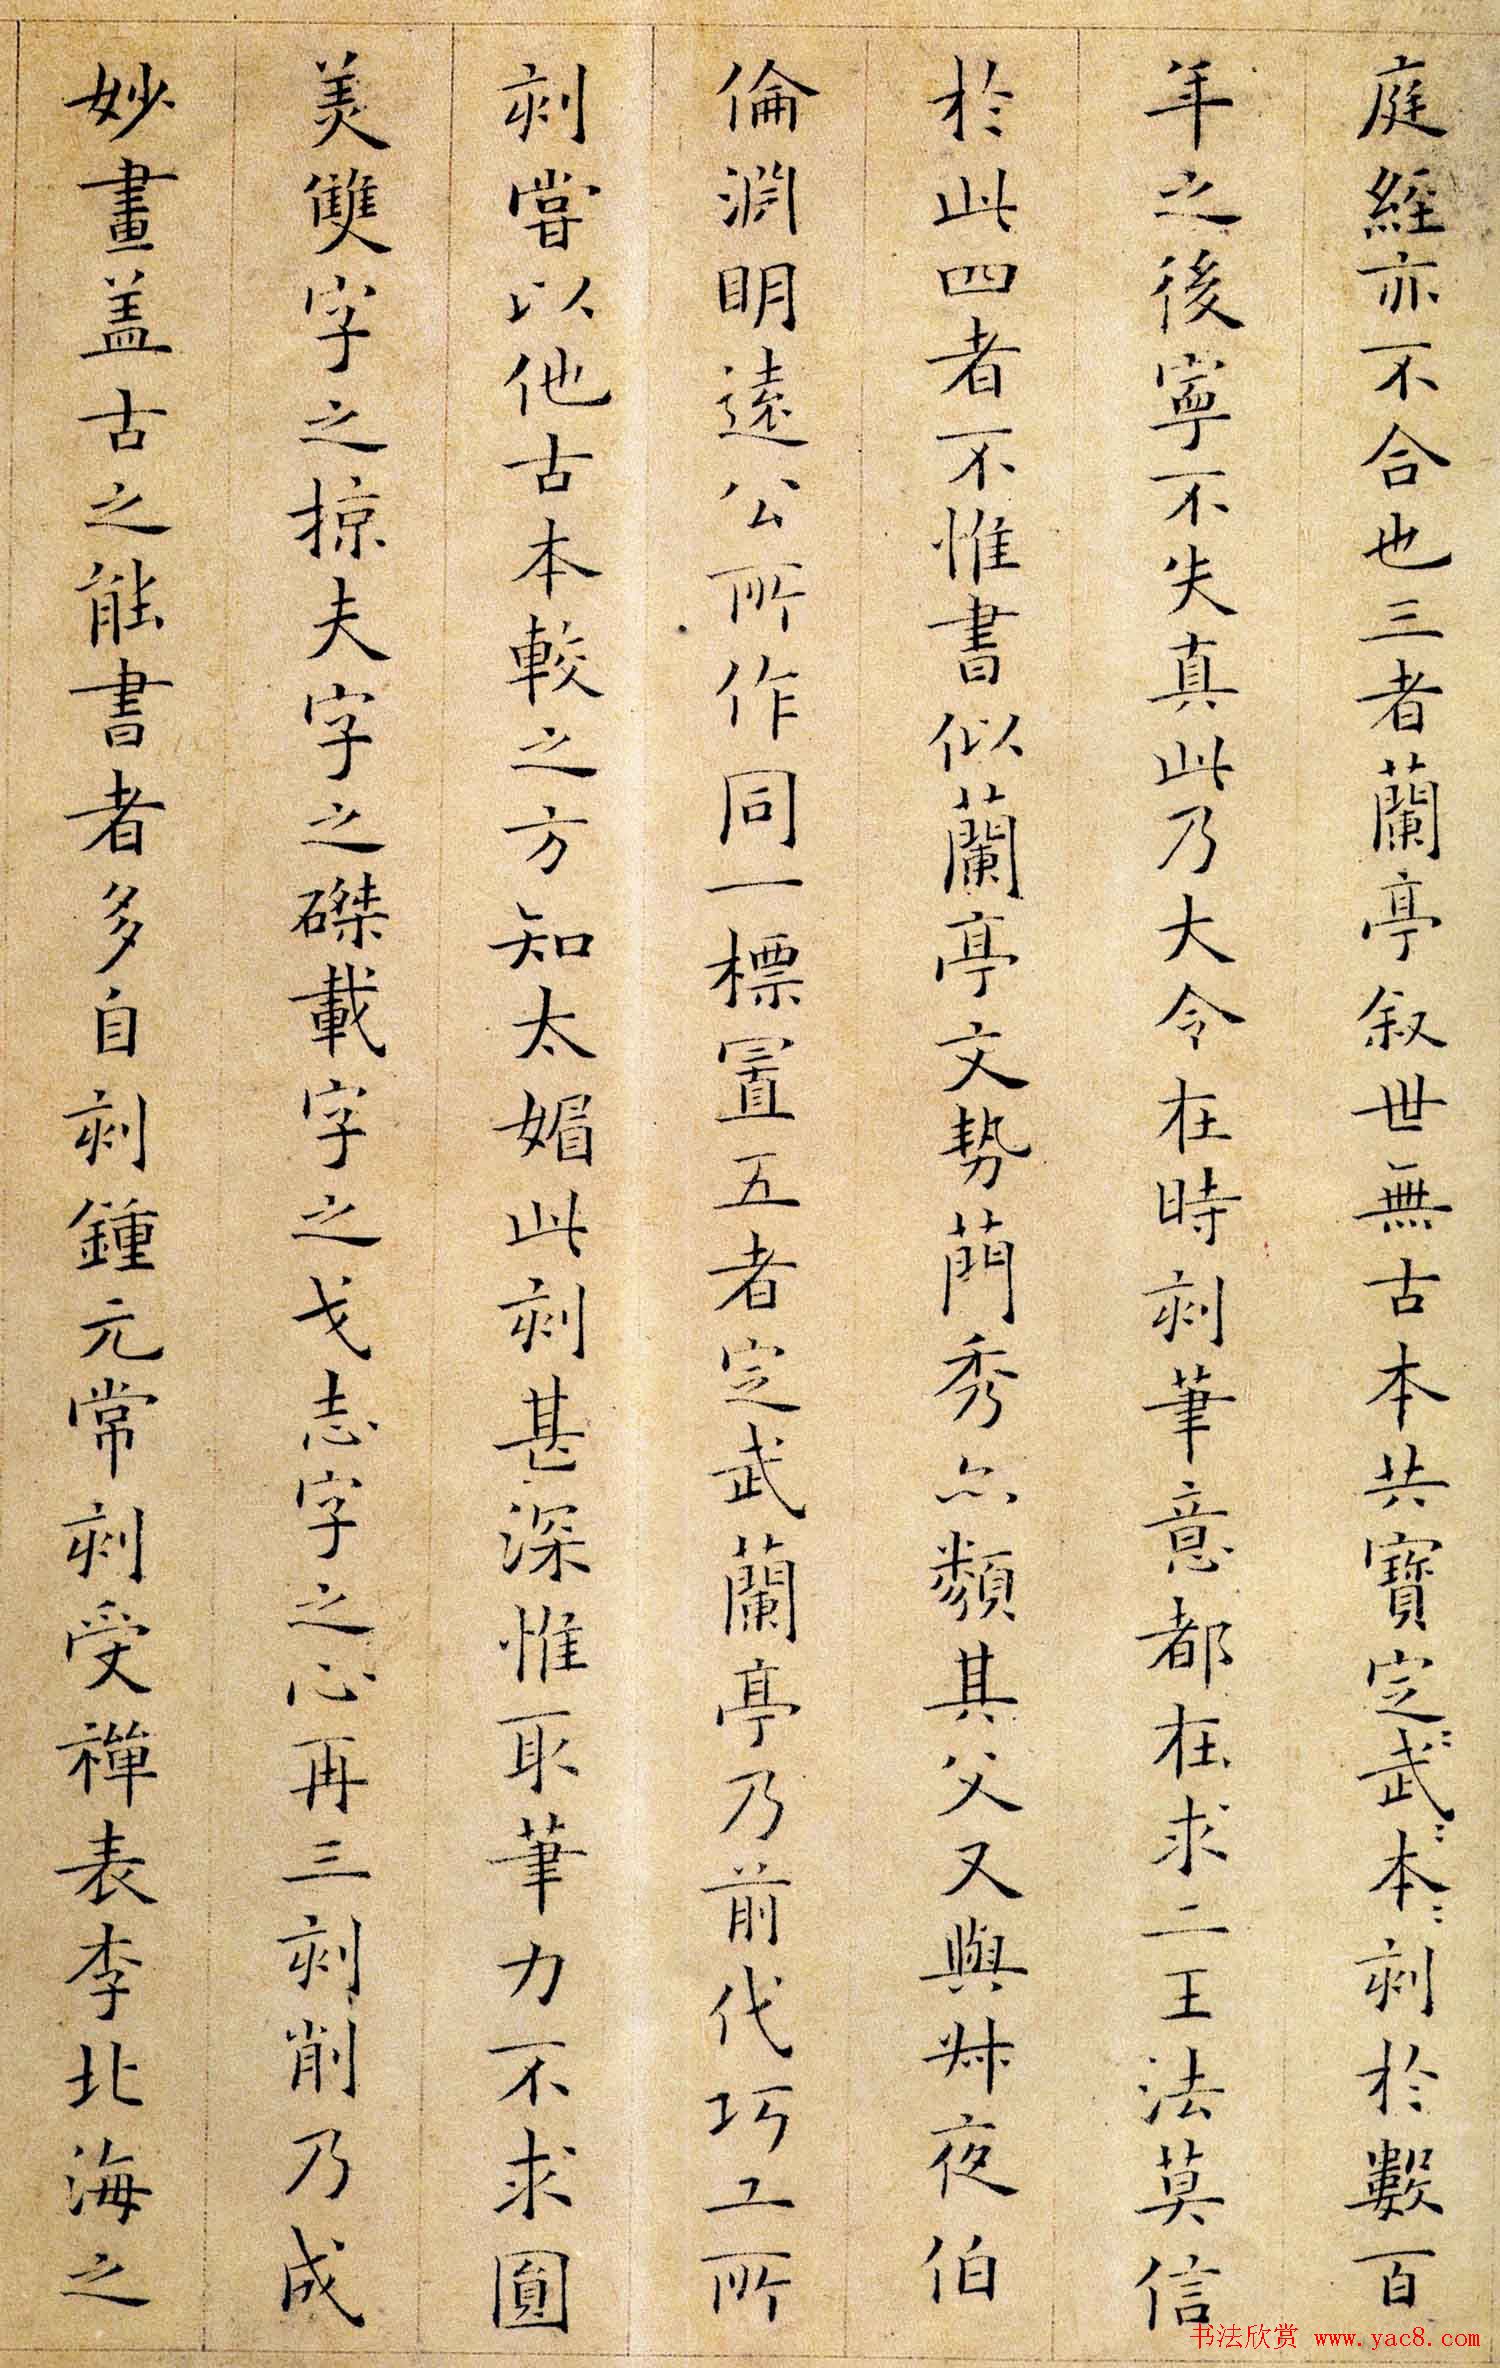 庭經亦不合也三者蘭亭叙世無古本共寶定武本刻於數百
年之後寧不失真此乃大令在時刻筆意都在求二王法莫信
於此四者不惟書似蘭亭文勢蕳秀亦類其父又與叔夜伯
倫淵明遠公所作同一標置五者定武蘭亭乃前代巧工所
刻嘗以他古本較之方知太媚此刻甚深惟取筆力不求圓
美雙字之掠夫字之磔載字之戈志字之心再三刻削乃成
妙畫盖古之能書者多自刻鍾元常刻受禪表李北海之
书法欣赏 www.yac8.com